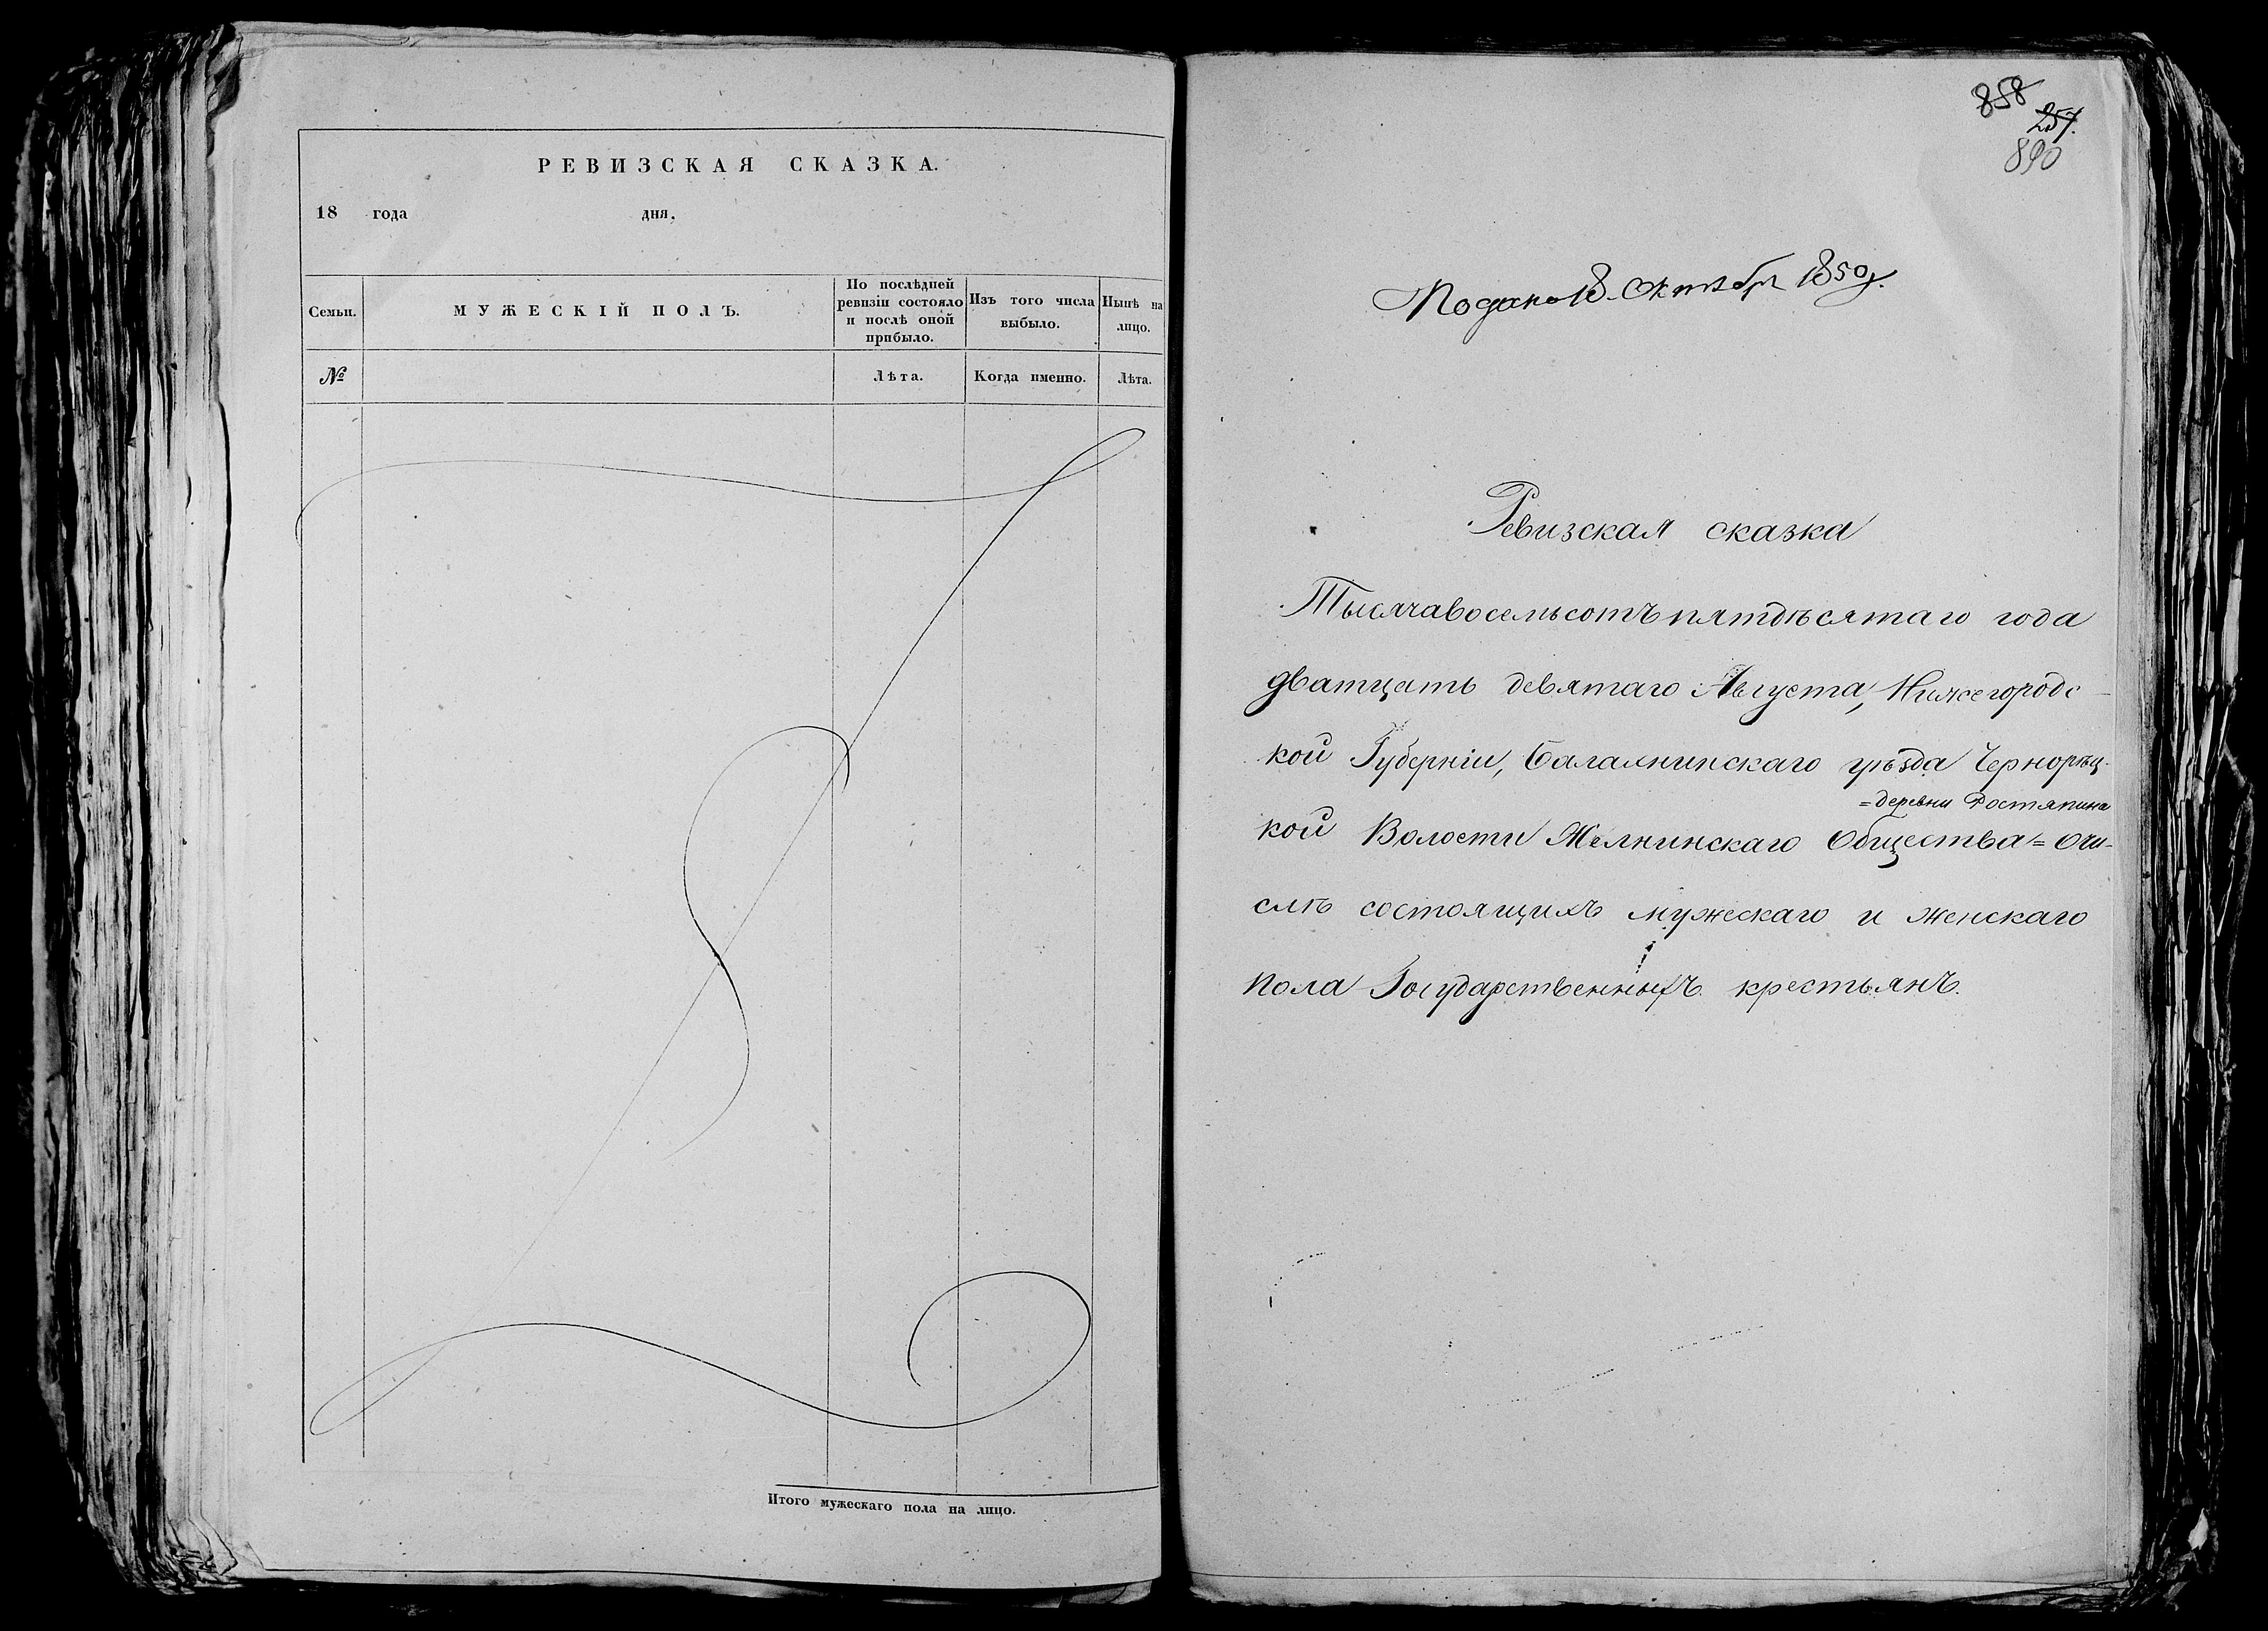 РЕВИЗСКАЯ СКАЗКА.
18 года дня.
Семьи.
МУЖЕСКІЙ ПОЛЪ.
По послѣдней
ревизіи состояло
и послѣ оной
прибыло.
Изъ того числа
выбыло.
Нынѣ на
лицо.
№
Лѣта.
Когда именно.
Лѣта.
Итого мужескаго пола на лицо.
858
257.
890
Подана 18 Октября 1850 г.
Ревизская сказка
Тысячавосемьсотъ пятдѣсятаго года
дватцать девятаго Августа, Нижегородс-
кой Губерніи, Балахнинскаго уѣзда Чернорѣц-
=деревни Ростяпина
кой Волости Желнинскаго Общества= очи-
слѣ состоящихъ мужескаго и женскаго
пола Государственныхъ крестьянъ.